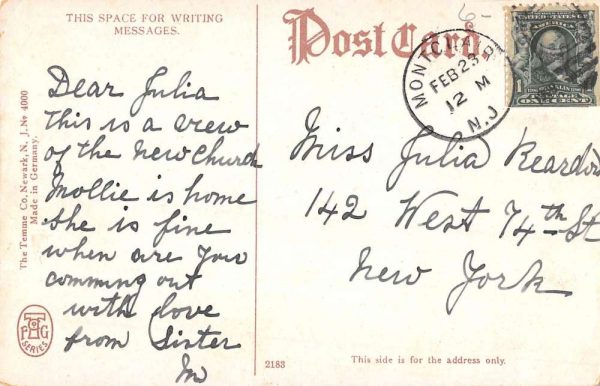 THIS SPACE FOR WRITING
MESSAGES.
Dear Julia
this is a view
of the new church
Mollie is home
she is fine
when are you
comming out
with love
from Sister
M
The Temme Co. Newark, N. J. No 4000
Made in Germany.
SERIES
2183
Post Card.
MONTCLAIR
FEB 23
12 M
N.J.
UNITED STATES OF
AMERICA
1
ONE CENT
Miss Julia Reardon
142 West 74th St
New York
This side is for the address only.